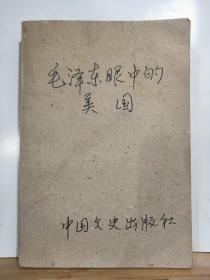 毛泽东眼中的
美国
中国文史出版社